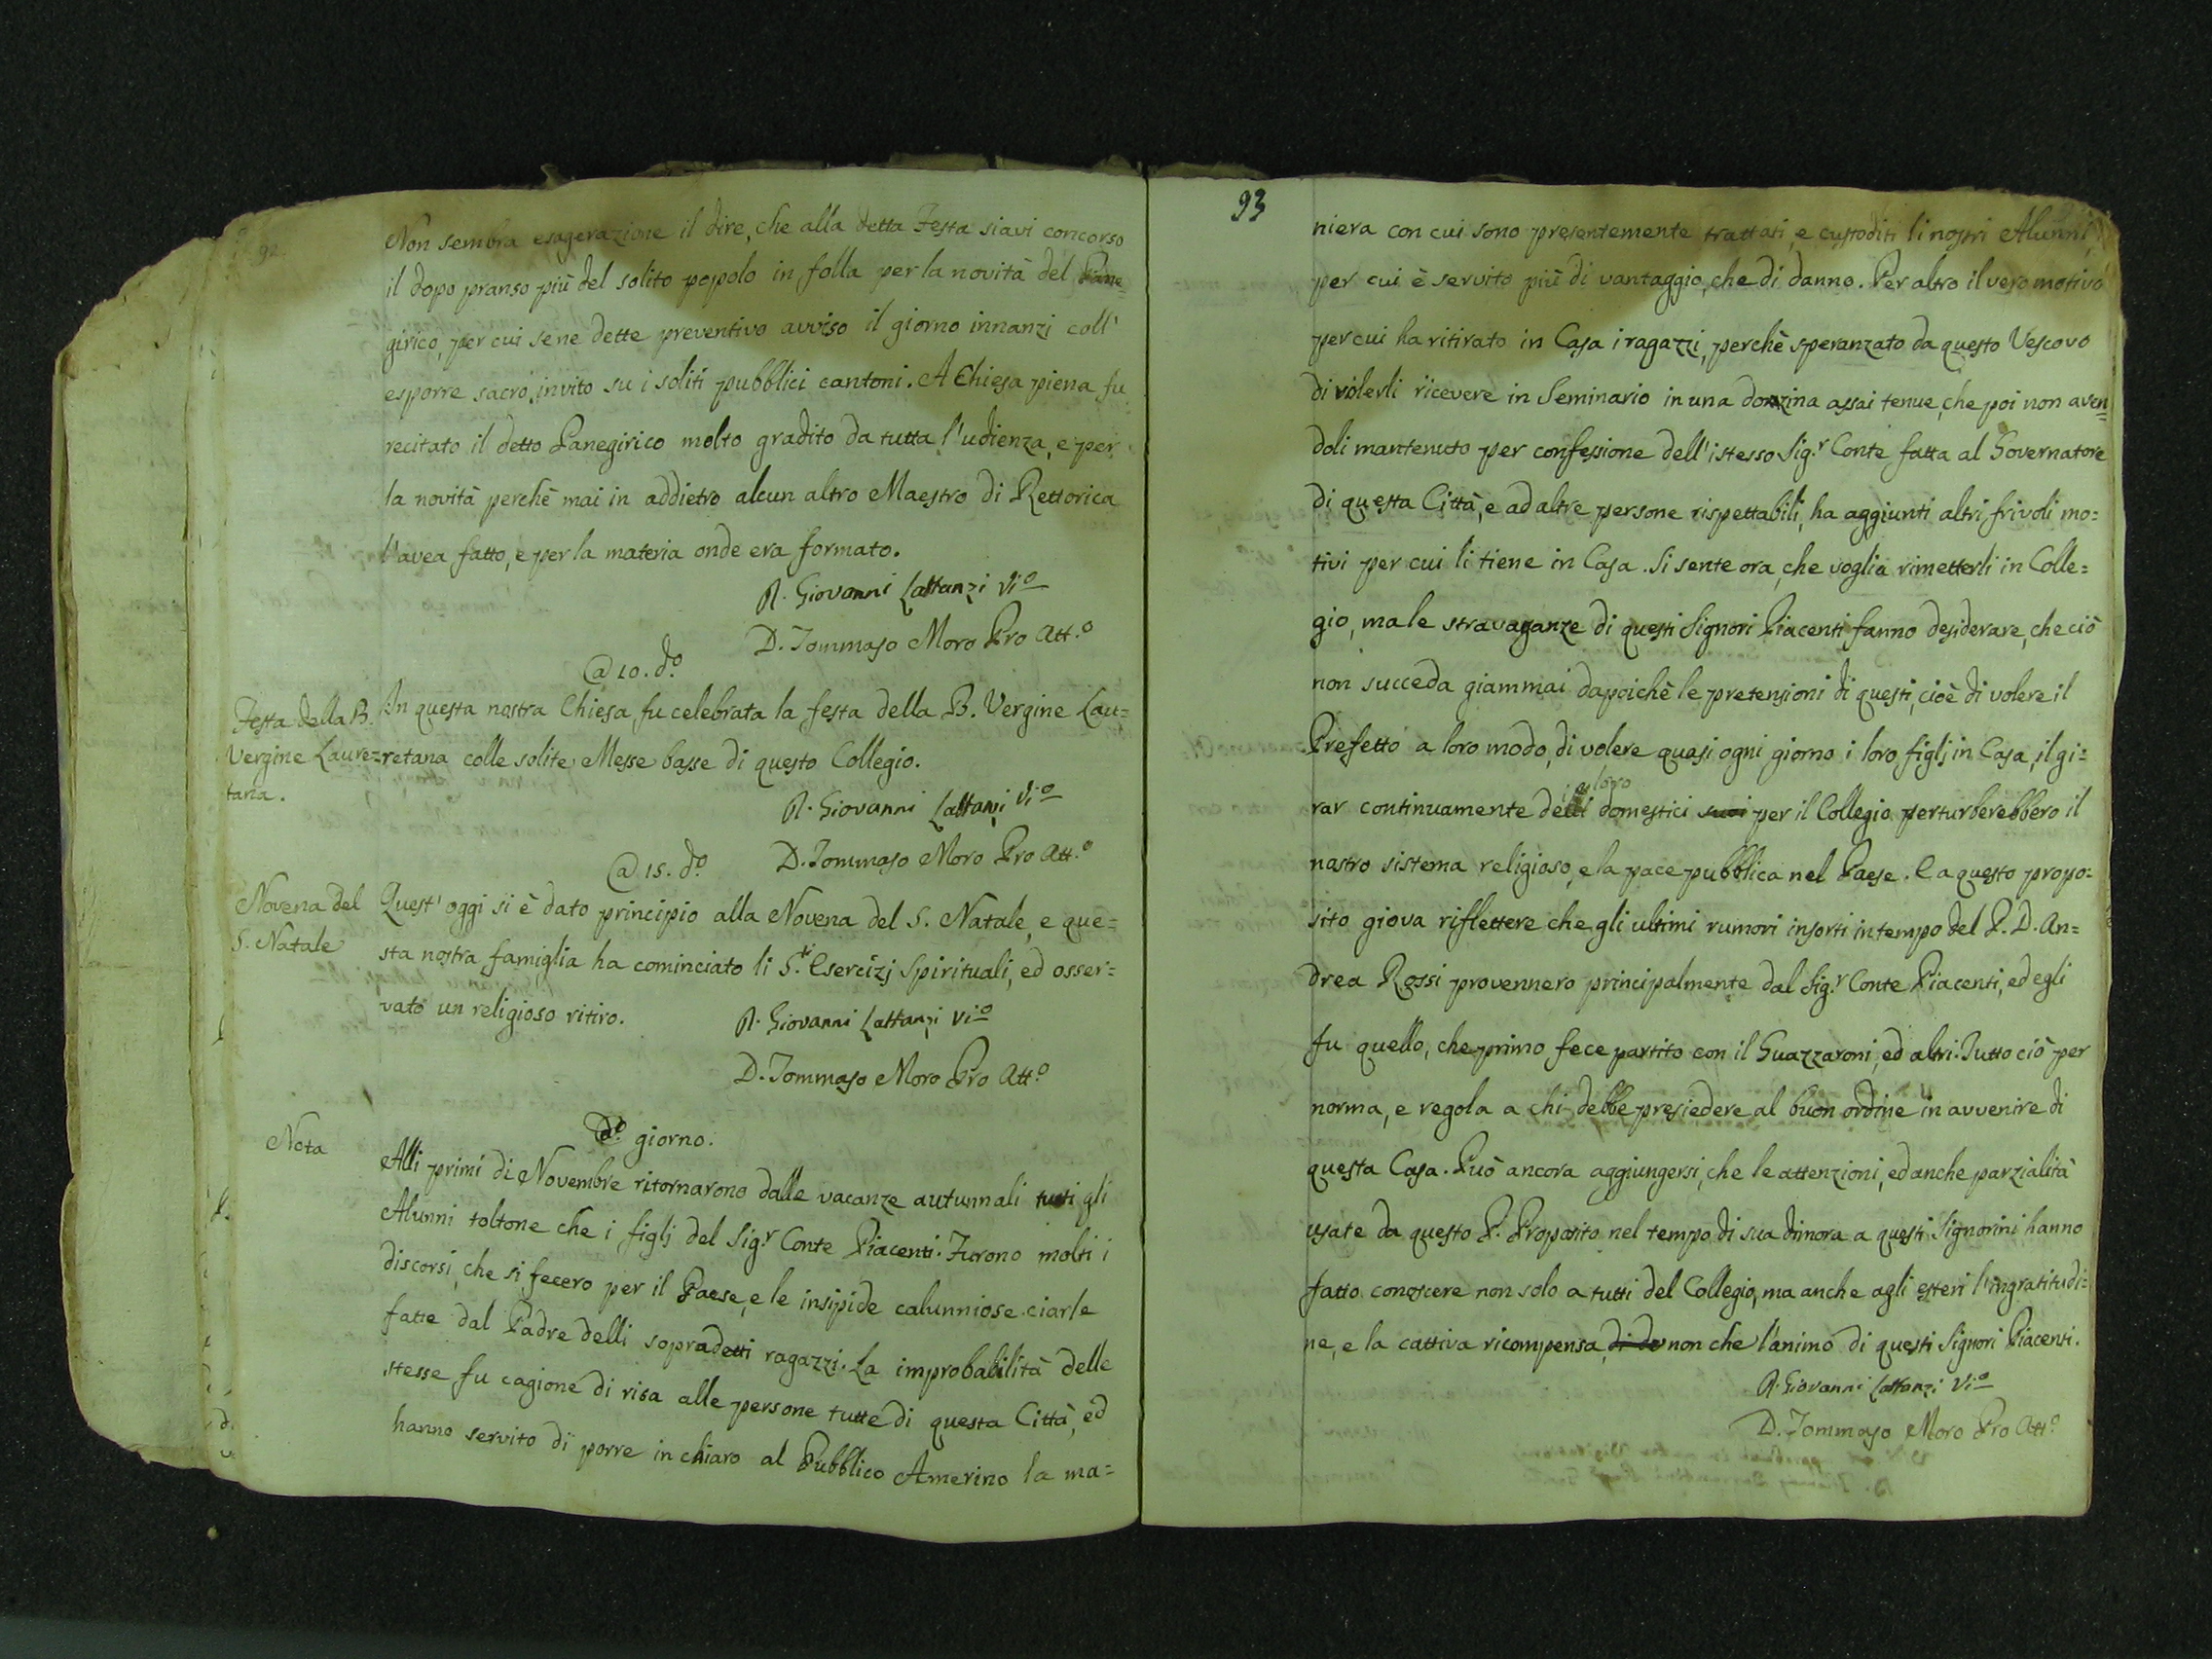 92
Non sembra esagerazione il dire, che alla detta Festa siavi concorso
il dopo pranso più del solito popolo in folla per la novità del Pane=
girico, per cui se ne dette preventivo avviso il giorno innanzi coll'
esporre sacro invito su i soliti pubblici cantoni. A Chiesa piena fu
recitato il detto Panegirico molto gradito da tutta l'udienza, e per
la novità perchè mai in addietro alcun altro Maestro di Rettorica
l'avea fatto, e per la materia onde era formato.
P. Giovanni Lattanzi Vi.o
D. Tommaso Moro Pro Att.o
@ 10. d.o
Festa della B.
Vergine Laure=
tana.
In questa nostra Chiesa fu celebrata la festa della B. Vergine Lau=
retana colle solite Messe basse di questo Collegio.
P. Giovanni Lattanzi Vi.o
D. Tommaso Moro Pro Att.o
@ 15. d.o
Novena del
S. Natale
Quest'oggi si è dato principio alla Novena del S. Natale, e que=
sta nostra famiglia ha cominciato li S.ti Esercizj Spirituali, ed osser=
vato un religioso ritiro.
P. Giovanni Lattanzi Vi.o
D. Tommaso Moro Pro Att.o
d.o giorno.
Nota
Alli primi di Novembre ritornarono dalle vacanze autunnali tutti gli
Alunni toltone che i figlj del Sig.r Conte Piacenti. Furono molti i
discorsi, che si fecero per il Paese, e le insipide calunniose ciarle
fatte dal Padre delli sopradetti ragazzi. La improbabilità delle
stesse fu cagione di risa alle persone tutte di questa Città, ed
hanno servito di porre in chiaro al Pubblico Amerino la ma=
93
niera con cui sono presentemente trattati, e custoditi li nostri Alunni,
per cui è servito più di vantaggio, che di danno. Per altro il vero motivo
per cui ha ritirato in Casa i ragazzi, perchè speranzato da questo Vescovo
di volerli ricevere in Seminario in una donzina assai tenue, che poi non aven=
doli mantenuto per confessione dell'istesso Sig.r Conte fatta al Governatore
di questa Città, e ad altre persone rispettabili, ha aggiunti altri frivoli mo=
tivi per cui li tiene in Casa. Si sente ora, che voglia rimetterli in Colle=
gio, ma le stravaganze di questi Signori Piacenti fanno desiderare, che ciò
non succeda giammai dapoichè le pretensioni di questi, cioè di volere il
Prefetto a loro modo, di volere quasi ogni giorno i loro figlj in Casa, il gi=
rar continuamente delli loro domestici suoi per il Collegio perturberebbero il
nostro sistema religioso, e la pace pubblica nel Paese. E a questo propo=
sito giova riflettere che gli ultimi rumori insorti in tempo del P. D. An=
drea Rossi provennero principalmente dal Sig.r Conte Piacenti, ed egli
fu quello, che primo fece partito con il Guazzaroni, ed altri. Tutto ciò per
norma, e regola a chi debbe presiedere al buon ordine in avvenire di
questa Casa. Può ancora aggiungersi, che le attenzioni, ed anche parzialità
usate da questo P. Proposito nel tempo di sua dimora a questi Signorini hanno
fatto conoscere non solo a tutti del Collegio, ma anche agli esteri l'ingratitudi=
ne, e la cattiva ricompensa, non che l'animo di questi Signori Piacenti.
P. Giovanni Lattanzi Vi.o
D. Tommaso Moro Pro Att.o